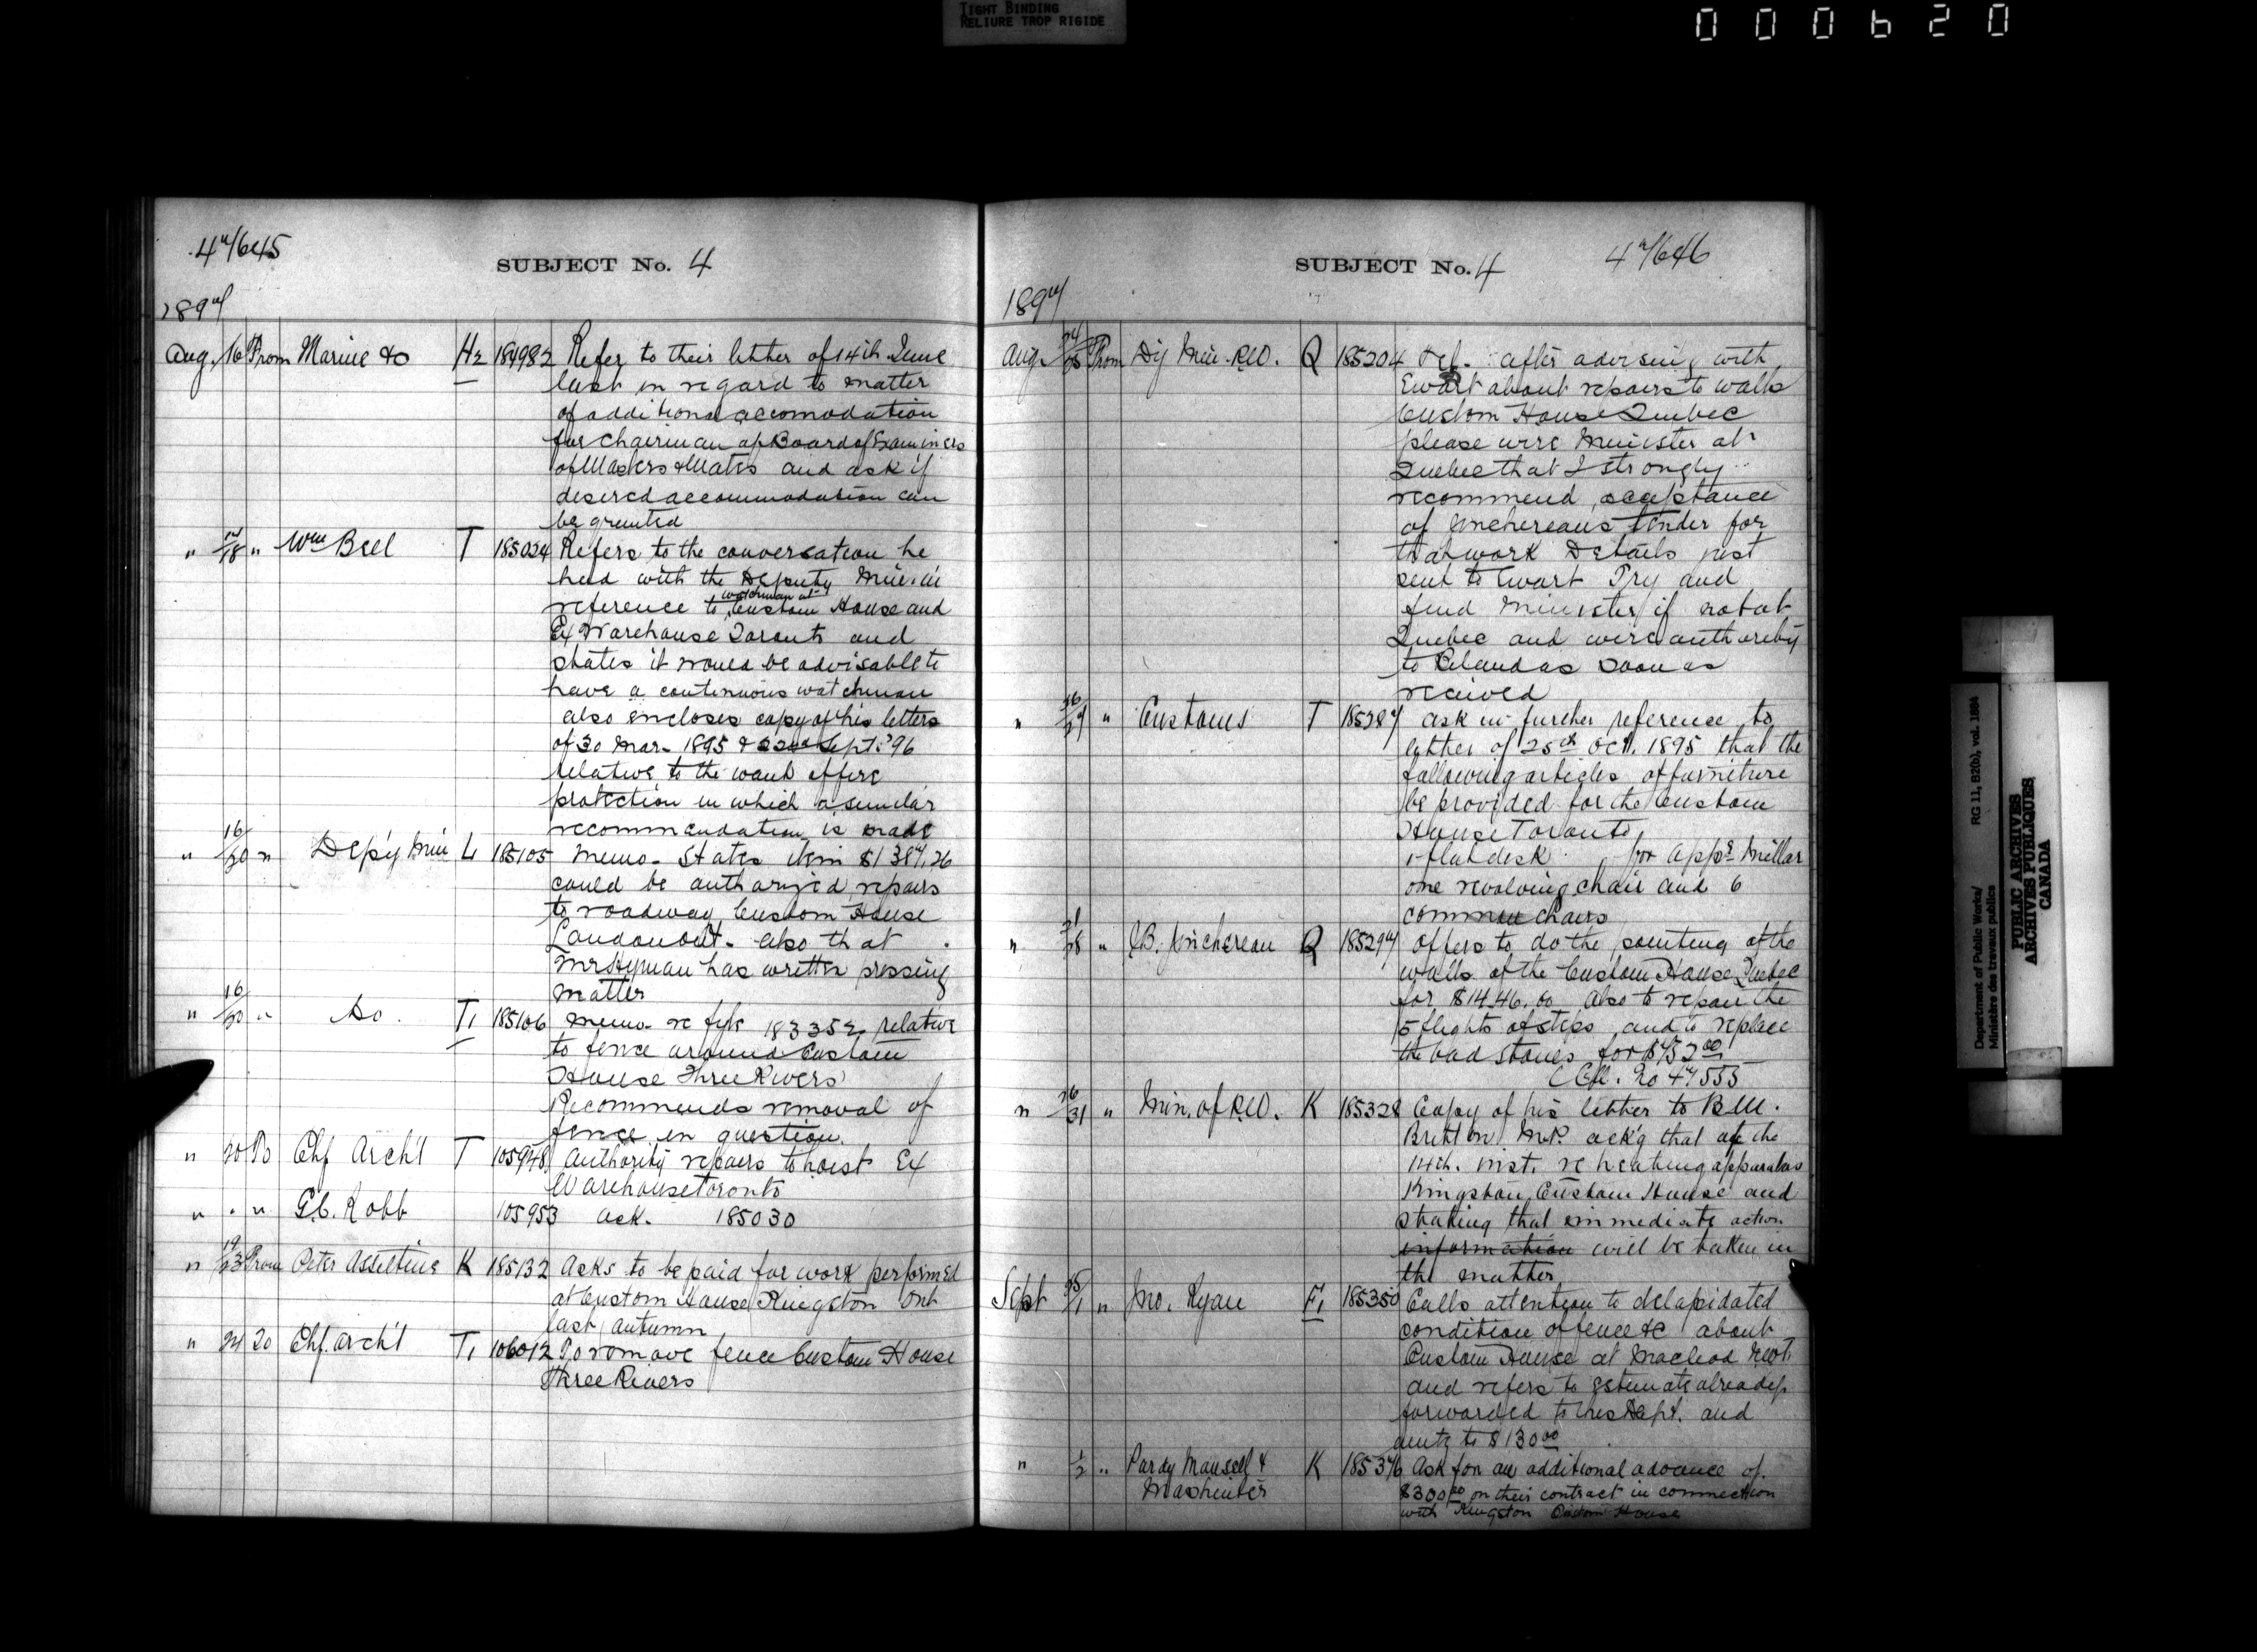 TIGHT BINDING
RELIURE TROP RIGIDE
000620
47645
SUBJECT No. 4
1897
Aug. 16 From Marine &c H2 184982 Refer to their letter of 14th June
last in regard to matter
of additional accomodation
for Chairman of Board of Examiners
of Masters & Mates and ask if
desired accommodation can
be granted
" 17/18 " Wm Bell T 185024 Refers to the conversation he
had with the Deputy Min. in
watchman at
reference to Custom House and
Ex Warehouse Toronto and
states it would be advisable to
have a continuous watchman
also encloses copy of his letters
of 30 Mar. 1895 & 22nd Sept. '96
relative to the want of fire
protection in which a similar
recommendation is made
" 16/20 " Dep'y Min L 185105 Memo. States item $1387.26
could be authorized repairs
to roadway Custom House
London Ont. also that
Mr Hyman has written pressing
matter
" 16/20 " Do. T1 185106 Memo re file 183352 relative
to fence around Custom
House Three Rivers
Recommends removal of
fence in question.
" 20 To Chf Archt T 105948 Authority repairs to hoist Ex
Warehouse Toronto
" " " G.C. Robb 105953 ack. 185030
" 19/23 From Peter Asseltine K 185132 Asks to be paid for work performed
at Custom House Kingston Ont
last autumn
" 24 To Chf. archt T1 106012 To remove fence Custom House
Three Rivers
SUBJECT No. 4
47646
1897
Aug. 24/26 From Dy Min. P.W. Q 185204 Tel. after advising with
Ewart about repairs to walls
Custom House Quebec
please wire Minister at
Quebec that I strongly
recommend acceptance
of Juchereaus tender for
that work Details just
sent to Ewart Try and
find Minister if not at
Quebec and wire authority
to as soon as
recived
" 26/27 " Customs T 185287 ask in further reference to
letter of 25th Oct. 1895 that the
following articles of furniture
be provided for the Custom
House Toronto
1 flat desk for appr. Millar
one revolving chair and 6
common chairs
" 21/28 " J.B. Juchereau Q 185297 Offers to do the pointing of the
walls of the Custom House Quebec
for $1446.00 also to repair the
5 flights of steps and to replace
the bad stones for $752.00
C Cft. No 47555
" 26/31 " Min. of P.W. K 185328 Copy of his letter to B.M.
Britton M.P. ack'g that of the
14th. inst. re heating apparatus
Kingston Custom House and
stating that immediate action
information will be taken in
the matter
Sept 25/1 " Jno. Ryan F1 185350 Calls attention to delapidated
condition of fence &c about
Custom House at Macleod NWT.
and refers to estimate already
forwarded to this Dept. and
amtg to $130.00
" 1/2 " Purdy Mansell & K 185376 Ask for an additional advance of
Mashinter $300.00 on their contract in connection
with Kingston Custom House
Department of Public Works/ RG 11, B2(b), vol. 1884
Ministère des travaux publics
PUBLIC ARCHIVES
ARCHIVES PUBLIQUES
CANADA